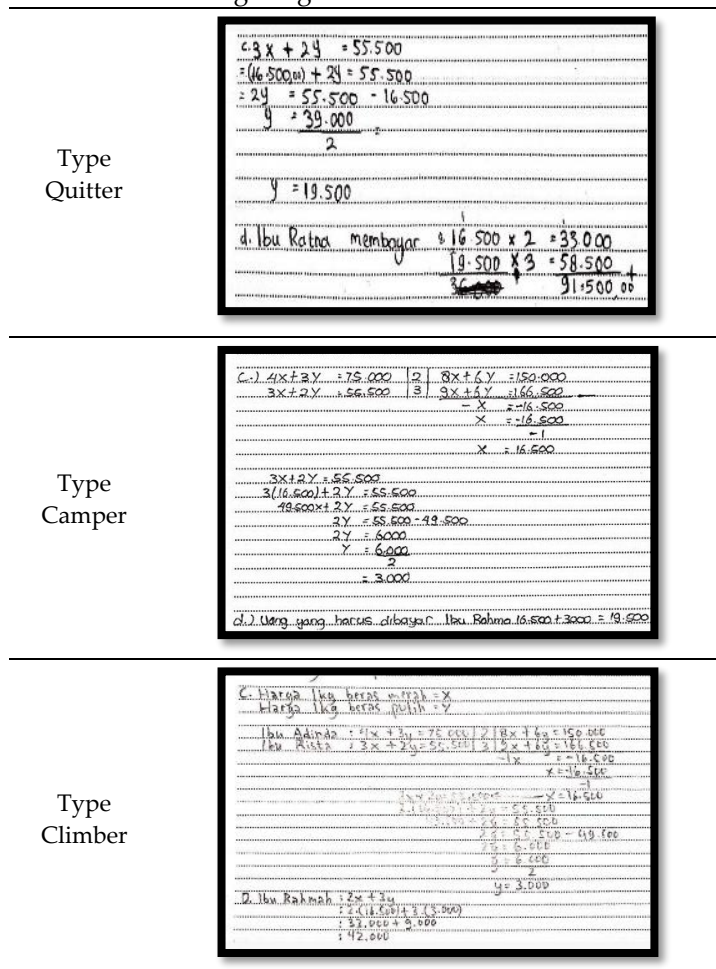 Type
Quitter
c. 3x + 2y = 55.500
= (16.500,00) + 2y = 55.500
= 2y = 55.500 - 16.500
y = 39.000 =
2
y = 19.500
d. Ibu Ratna membayar : 16.500 x 2 = 33.000
19.500 x 3 = 58.500 +
91.500,00
Type
Camper
C.) 4x+3y = 75.000 | 2 | 8x+6y = 150.000
3x+2y = 55.500 | 3 | 9x+6y = 166.500 -
- x = -16.500
x = -16.500
-1
x = 16.500
3x+2y = 55.500
3(16.500)+2y = 55.500
49.500x+2y = 55.500
2y = 55.500-49.500
2y = 6000
y = 6.000
2
= 3.000
d.) Uang yang harus dibayar Ibu Rahma 16.500+3000 = 19.500
Type
Climber
C. Harga 1kg beras merah = x
Harga 1kg beras putih = y
Ibu Adinda : 4x + 3y = 75.000 | 2 | 8x + 6y = 150.000
Ibu Rista : 3x + 2y = 55.500 | 3 | 9x + 6y = 166.500
-1x = -16.500
x = -16.500
-1
x = 16.500
= 55.500
+ 2y = 55.500
2y = 55.500 - 49.500
2y = 6.000
y = 6.000
2
y = 3.000
D. Ibu Rahmah : 2x + 3y
: 2.(16.500) + 3.(3.000)
: 33.000 + 9.000
: 42.000